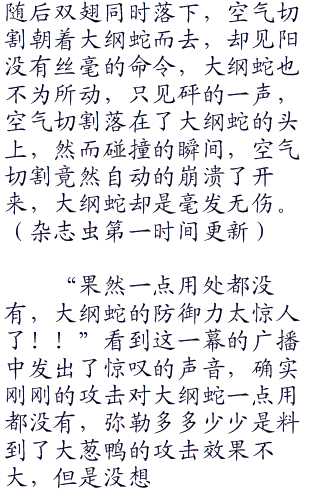 随后双翅同时落下，空气切
割朝着大纲蛇而去，却见阳
没有丝毫的命令，大纲蛇也
不为所动，只见砰的一声，
空气切割落在了大纲蛇的头
上，然而碰撞的瞬间，空气
切割竟然自动的崩溃了开
来，大纲蛇却是毫发无伤。
（杂志虫第一时间更新）
“果然一点用处都没
有，大纲蛇的防御力太惊人
了！！”看到这一幕的广播
中发出了惊叹的声音，确实
刚刚的攻击对大纲蛇一点用
都没有，弥勒多多少少是料
到了大葱鸭的攻击效果不
大，但是没想